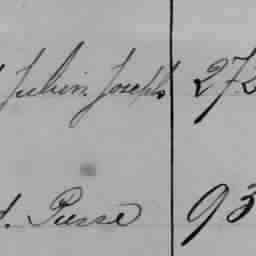 Julien Joseph 272
d. Pierre 93